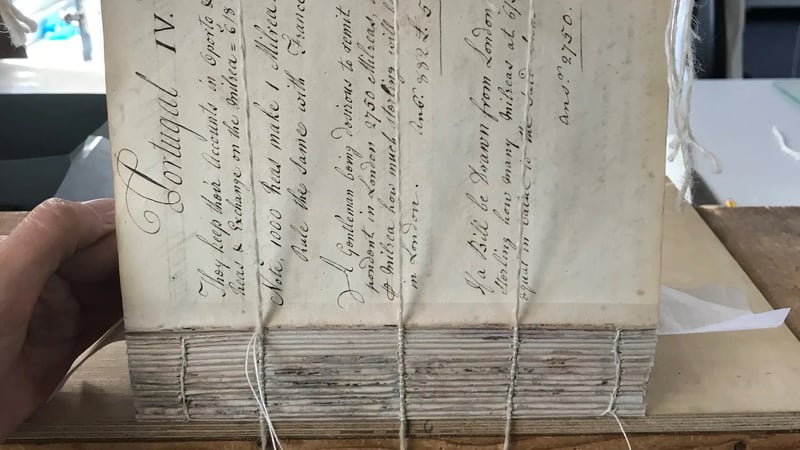 Portugal IV.
They keep their Accounts in Oporto &
Reas & Exchange on the Milrea =
Note, 1000 Reas make 1 Milrea.
Rule the Same with France
A Gentleman being desirous to remit
pondent in London 2750 Milreas,
Milrea how much sterling will be
in London. Ansr. 882 £. 5
If a Bill be Drawn from London
sterling how many Milreas at 6/5
equal in Value to the
ansr. 2750.